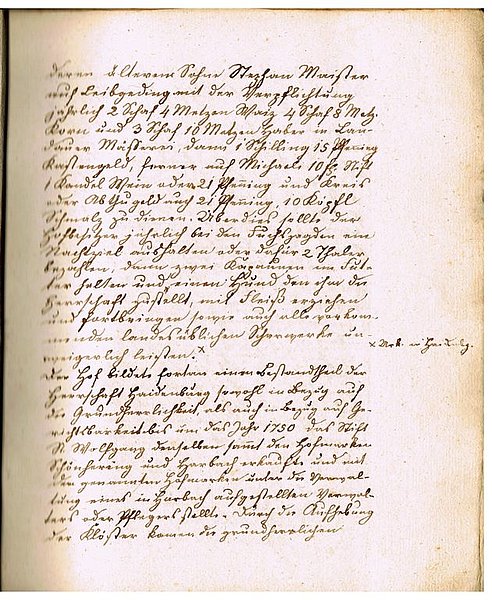 deren älterem Sohne Stephan Maister
auf Leibgeding mit der Verpflichtung
jährlich 2 Schaf 4 Metzen Waiz 4 Schaf 8 Metz.
Korn und 3 Schaf 10 Metzen Haber in Lan-
dauer Mässerei, dann 1 Schilling 15 Pfennig
Kastengeld, ferner auf Michaeli 10 fl Stift
1 Kandel Wein oder 21 Pfenning und Kreis
oder Abthugeld auch 21 Pfenning, 10 Köpfl
Schmalz zu dienen. Überdies sollte der
Hofbesitzer jährlich bei den Fuchsjagden ein
Nachtziel aushalten oder dafür 2 Thaler
bezahlen, dann zwei Kapaunen im Fut-
ter halten und einen Hund den ihm die
Herrschaft zustellt, mit Fleiß erziehen
und fortbringen sowie auch alle vorkom-
menden landesüblichen Scherwerke un-
weigerlich leisten. ×
× Urk. in Haidenbg.
Der Hof bildete fortan einen Bestandtheil der
Herrschaft Haidenburg sowohl in Bezug auf
die Grundherrlichkeit, als auch in Bezug auf Ge-
richtsbarkeit bis um das Jahr 1750 das Stift
St. Wolfgang denselben sammt den Hofmarken
Schönhering und Harbach erkaufte und mit
den genannten Hofmarken unter die Verwal-
tung eines in Harbach aufgestellten Verwal-
ters oder Pflegers stellte. Durch die Aufhebung
der Klöster kamen die grundherrlichen